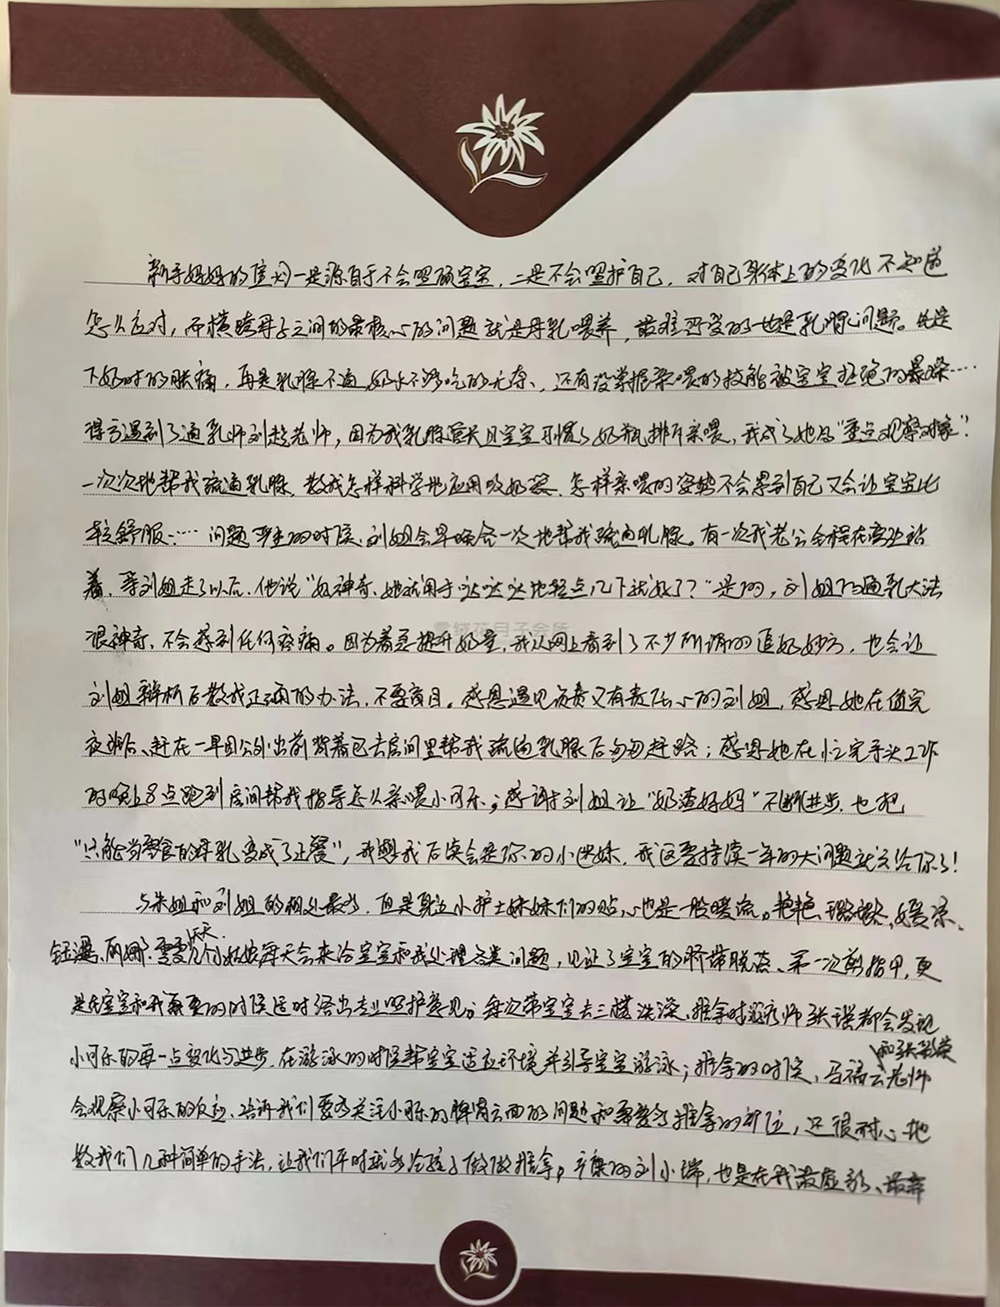 新手妈妈的焦虑一是源自于不会照顾宝宝，二是不会照护自己，对自己身体上的变化不知道
怎么应对，而横跨母子之间的最核心的问题就是母乳喂养，最难忍受的也是乳腺问题。先是
下奶时的胀痛，再是乳腺不通奶水不够吃的无奈、还有没掌握亲喂的技能被宝宝拒绝的暴躁……
得亏遇到了通乳师刘超老师，因为我乳腺管长且宝宝习惯了奶瓶排斥亲喂，我成了她的“重点观察对象”！
一次次地帮我疏通乳腺，教我怎样科学地应用吸奶器、怎样亲喂的姿势不会累到自己又会让宝宝比
较舒服…… 问题严重的时候、刘姐会早晚各一次地帮我疏通乳腺。有一次我老公全程在旁边站
着，等刘姐走了以后，他说“好神奇、她就用手哒哒哒地轻点几下就好了？”是的，刘姐的通乳大法
很神奇，不会感到任何疼痛。因为着急提升奶量，我从网上看到了不少所谓的追奶妙方，也会让
刘姐辩析后教我正确的办法，不要盲目。感恩遇见负责又有责任心的刘姐，感恩她在值完
夜班后、赶在一早因公外出前背着包去房间里帮我疏通乳腺后匆匆赶路；感恩她在忙完手头工作
的晚上8点跑到房间帮我指导怎么亲喂小可乐；感谢刘姐让“奶渣好妈”不断进步，也把
“只能当零食的母乳变成了正餐”，我想我后续会是你的小迷妹，我这要持续一年的大问题就交给你了！
与朱姐和刘姐的相处最多，但是身边小护士妹妹们的贴心也是一股暖流。艳艳、璐璐、媛添、
钰灵、丽娜、雯雯、天天几个小姑娘每天会来给宝宝和我处理各类问题，见证了宝宝的脐带脱落、第一次剪指甲，更
是在宝宝和我需要的时候适时给出专业照护意见。每次带宝宝去三楼洗澡、推拿时游泳师张瑞都会发现
小可乐的每一点变化与进步，在游泳的时候帮宝宝适应环境并引导宝宝游泳；推拿的时候，马福云和张彩英老师
会观察小可乐的反应、告诉我们要多关注小可乐的脾胃方面的问题和需要多推拿的部位，还很耐心地
教我们几种简单的手法，让我们平时就多给孩子做做推拿。产康的刘小瑞，也是在我最虚弱、最奔